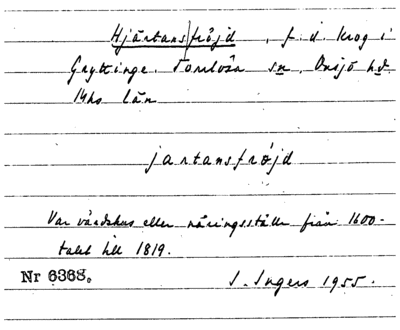 Hjärtansfröjd, f. d. krog i
Gryttinge. Torrlösa sn, Onsjö hd.
Mhs län
jartansfröjd
Var värdshus eller näringsställe från 1600-
talet till 1819.
Nr 6368. I. Ingers 1955.